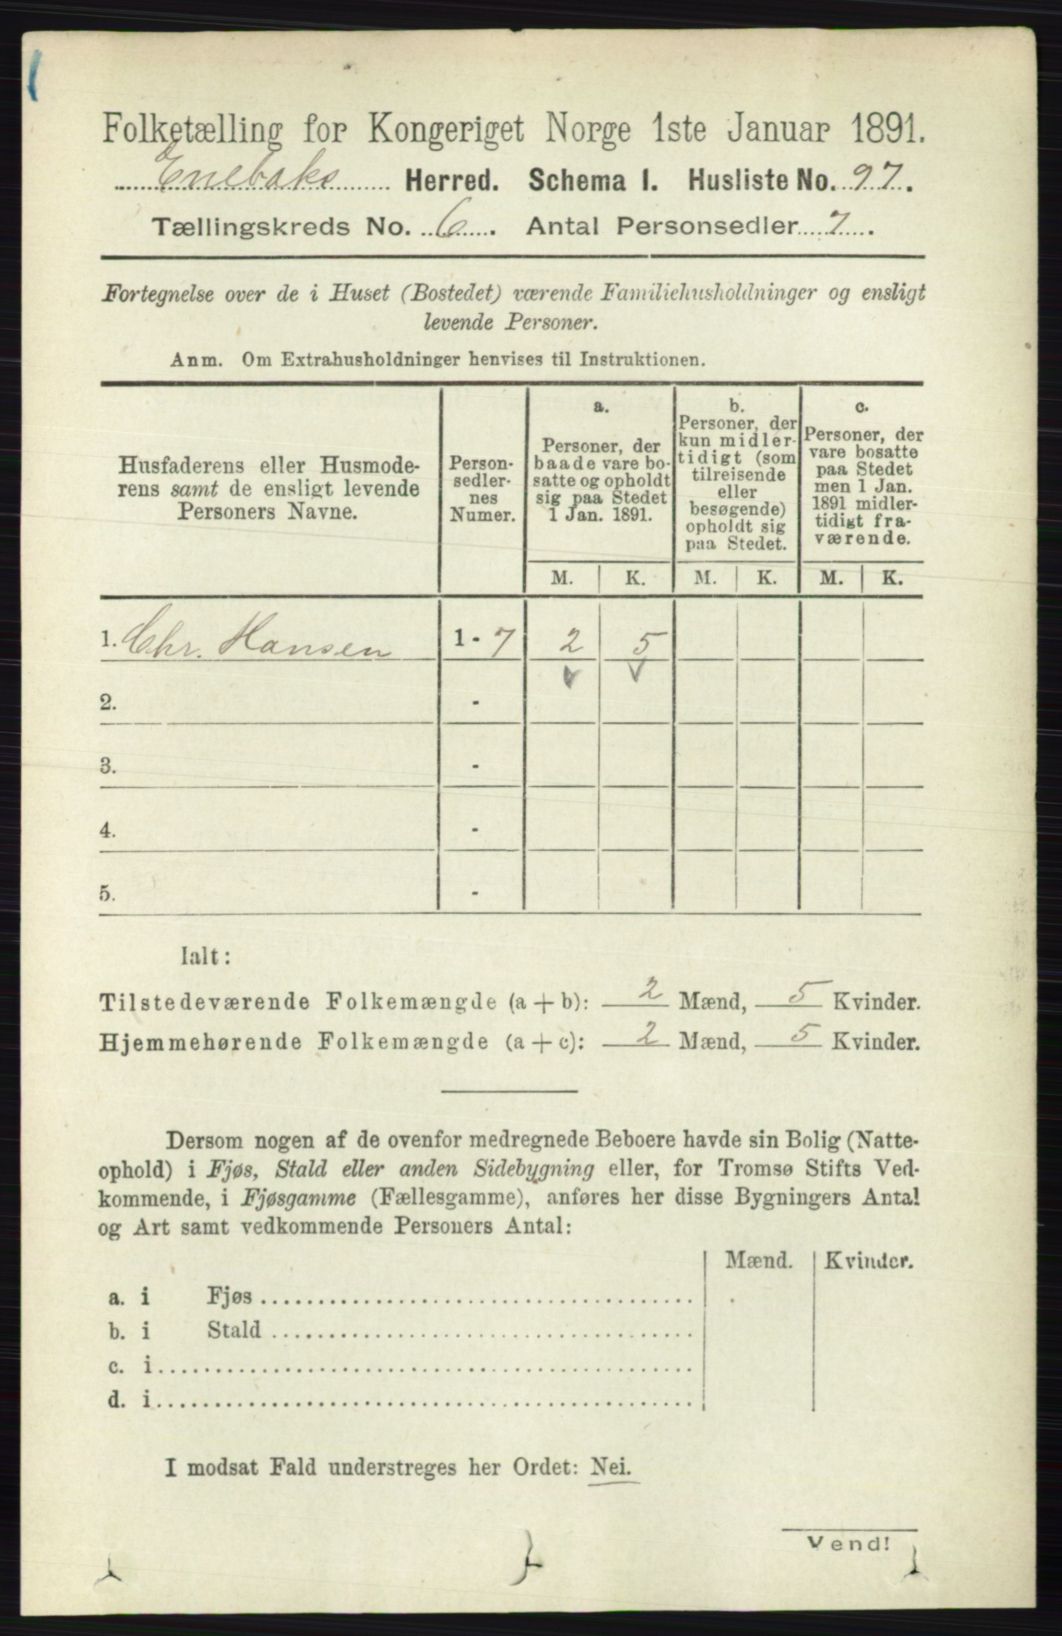 Folketælling for Kongeriget Norge 1ste Januar 1891.
Enebaks Herred. Schema I. Husliste No. 97.
Tællingskreds No. 6. Antal Personsedler 7.
Fortegnelse over de i Huset (Bostedet) værende Familiehusholdninger og ensligt
levende Personer.
Anm. Om Extrahusholdninger henvises til Instruktionen.
Husfaderens eller Husmode-
rens samt de ensligt levende
Personers Navne.
Person-
sedler-
nes
Numer.
a.
Personer, der
baade vare bo-
satte og opholdt
sig paa Stedet
1 Jan. 1891.
b.
Personer, der
kun midler-
tidigt (som
tilreisende
eller
besøgende)
opholdt sig
paa Stedet.
c.
Personer, der
vare bosatte
paa Stedet
men 1 Jan.
1891 midler-
tidigt fra-
værende.
M. K. M. K. M. K.
1. Chr. Hansen 1 - 7 2 5
2. -
3. -
4. -
5. -
Ialt:
Tilstedeværende Folkemængde (a + b): 2 Mænd, 5 Kvinder.
Hjemmehørende Folkemængde (a + c): 2 Mænd, 5 Kvinder.
Dersom nogen af de ovenfor medregnede Beboere havde sin Bolig (Natte-
ophold) i Fjøs, Stald eller anden Sidebygning eller, for Tromsø Stifts Ved-
kommende, i Fjøsgamme (Fællesgamme), anføres her disse Bygningers Antal
og Art samt vedkommende Personers Antal:
Mænd. Kvinder.
a. i Fjøs
b. i Stald
c. i
d. i
I modsat Fald understreges her Ordet: Nei.
Vend!